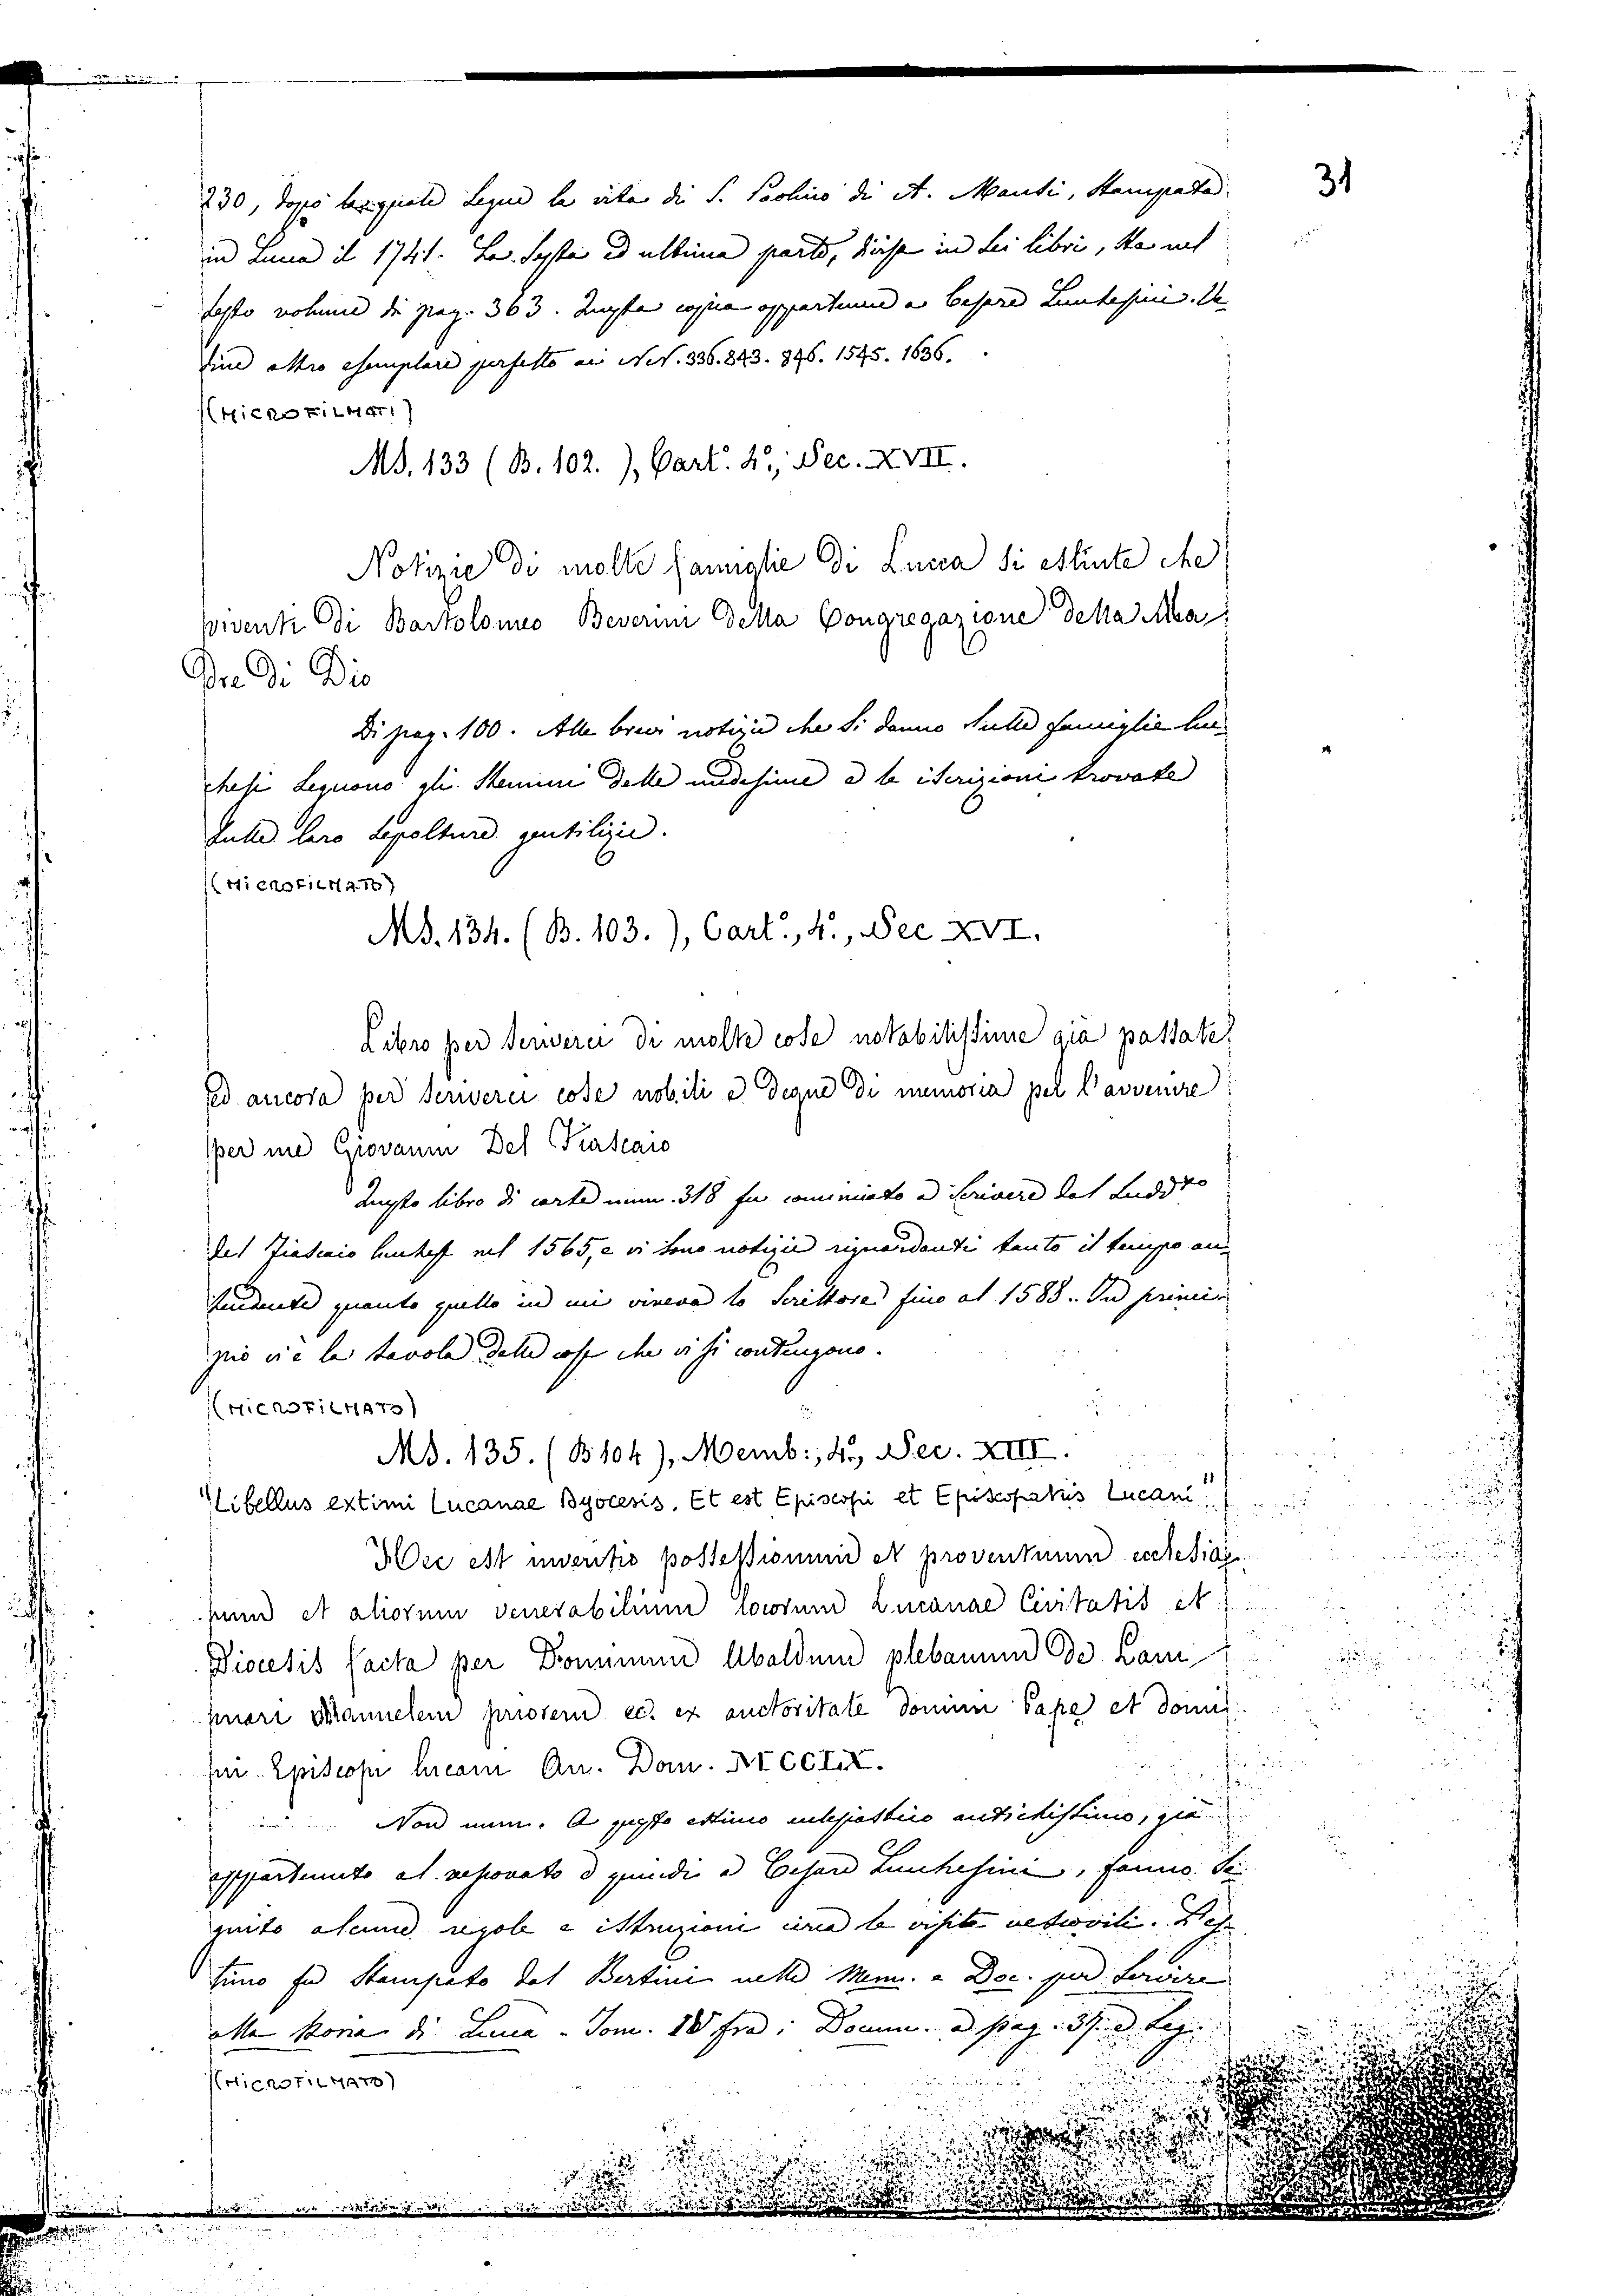 31
230, dopo la quale segue la vita di S. Paolino di A. Mansi, stampata
in Lucca il 1741. La sesta ed ultima parte, divisa in sei libri, sta nel
sesto volume di pag. 363. Questa copia appartenne a Cesare Lucchesini. Ve-
dine altro esemplare perfetto ai NN. 336. 843. 846. 1545. 1636.
(MICROFILMATI)
MS. 133 (B. 102.), Cart. 4°, Sec. XVII.
Notizie di molte famiglie di Lucca si estinte che
viventi di Bartolomeo Beverini della Congregazione della Ma-
dre di Dio
Di pag. 100. Alle brevi notizie che si danno sulle famiglie luc-
chesi seguono gli stemmi delle medesime e le iscrizioni trovate
sulle loro sepolture gentilizie.
(MICROFILMATO)
MS. 134. (B. 103.), Cart., 4°, Sec XVI.
Libro per scriverci di molte cose notabilissime già passate
ed ancora per scriverci cose nobili e degne di memoria per l'avvenire
per me Giovanni Del
Questo libro di carte num. 318 fu cominciato a scrivere dal sudd.to
del lucchese nel 1565, e vi sono notizie riguardanti tanto il tempo an-
tecedente quanto quello in cui viveva lo scrittore fino al 1588. In princi-
pio vi è la tavola delle cose che vi si contengono.
(MICROFILMATO)
MS. 135. (B104), Memb:, 4°, Sec. XIII.
"Libellus extimi Lucanae Dyocesis. Et est Episcopi et Episcopatus Lucani"
Hec est inventio possessionum et proventuum ecclesia-
rum et aliorum venerabilium locorum Lucanae Civitatis et
Diocesis facta per Dominum Ubaldum plebanum de Lam-
mari Mannelem priorem ec. ex auctoritate domini Pape et domi-
ni Episcopi lucani An. Dom. MCCLX.
Non num. A questo estimo ecclesiastico antichissimo, già
appartenuto al vescovato e quindi a Cesare Lucchesini, fanno se-
guito alcune regole e istruzioni circa le visite vescovili. L'es-
timo fu stampato dal Bertini nelle Mem. e Doc. per servire
alla storia di Lucca - Tom. IV fra i Docum. a pag. 37. e seg.
(MICROFILMATO)